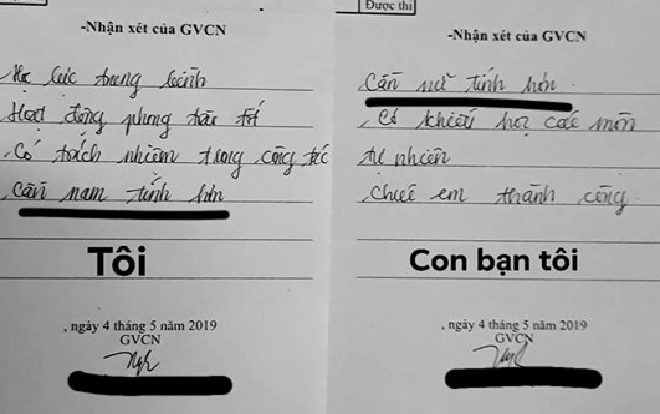 -Nhận xét của GVCN
Học lực trung bình
Hoạt động phong trào tốt
Có trách nhiệm trong công tác
Cần nam tính hơn
Tôi
, ngày 4 tháng 5 năm 2019
GVCN
Được thi
-Nhận xét của GVCN
Cần nữ tính hơn
, Có khiếu học các môn
tự nhiên
, Chúc em thành công.
Con bạn tôi
, ngày 4 tháng 5 năm 2019
GVCN